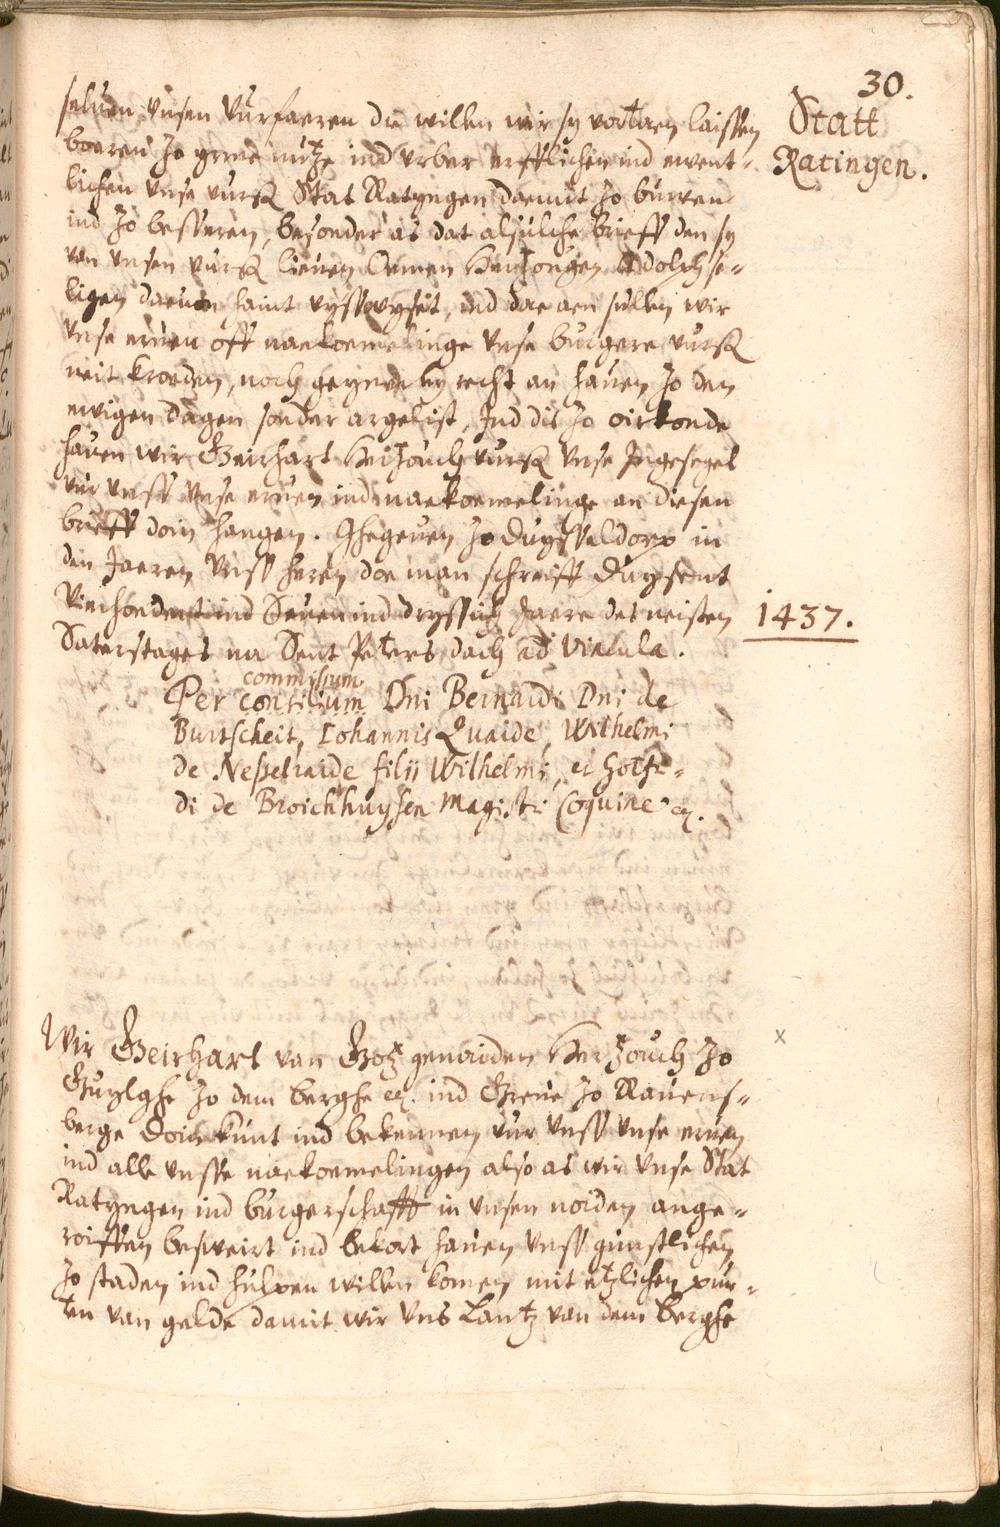 30.
Statt
Ratingen.
seluen vnsen vurfaeren die willen wir sy vortaen laissen
boeren zo yrme nutze ind vrber erfflichen ind ewent-
lichen vnse vursz Stat Ratyngen daemit zo buwen
ind zo besseren, besonder as dat alsulche brieff den sy
van vnsen vursz lieuen Oemen Hertzougen Adolph se-
ligen daeuan haint vysswyset, ind dae aen sullen wir
vnse eruen off naekoemelinge vnse burgere vursz
neit kroeden, noch geyne hy recht an hauen zo den
ewigen dagen sonder argelist, Ind dis zo oirkonde
hauen wir Geirhart Hertzouch vursz vnse Ingesegel
vur vnss vnse eruen ind naekoemelinge an diesen
brieff doin hangen. Ghegeuen zo Duysseldorp in
den Jaeren vnss heren doe man schreiff Duysent
Vierhondert ind Seuen ind dryssich Jaere des neisten
1437.
Saterstages na Sent Peters dach ad Vincula.
commissium
Per consilium Dni Bernardi Dni de
Burtscheit, Iohannis Quaide, Wilhelmi
de Nesselraide filii Wilhelmi, et Gotfri-
di de Broichhuysen Magistri Coquine etc.
Wir Geirhart van Gotz genaiden Hertzouch zo
Guylghe zo dem Berghe etc. ind Greue zo Rauens-
berge Doin kunt ind bekennen vur vnss vnse eruen
ind alle vnsse naekoemelingen also as wir vnse Stat
Ratyngen ind burgerschafft in vnsen noiden ange-
roiffen besweirt ind bekort hauen vnss gunstlichen
zo staden ind hulpen willen komen mit etzlichen pun-
ten van gelde damit wir vns Lantz van dem Berghe